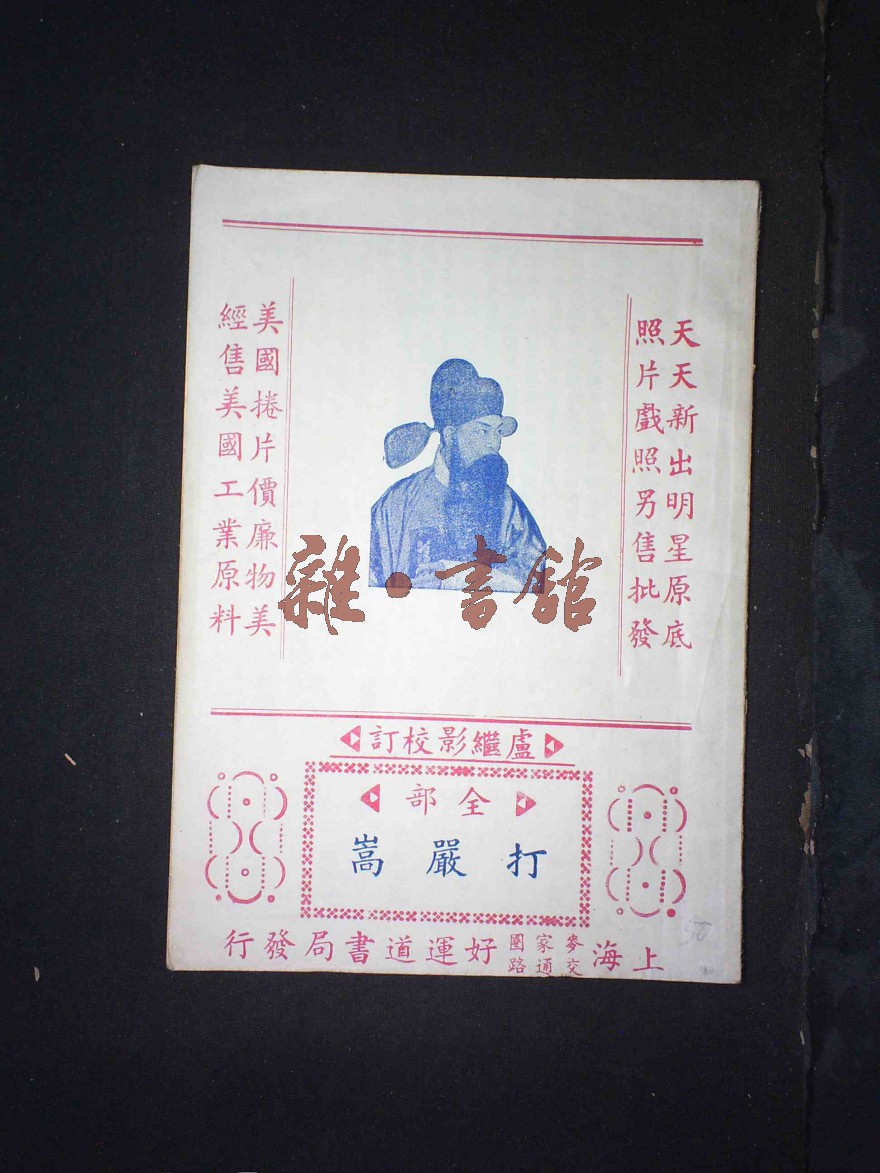 天天新出明星原底
照片戲照另售批發
美國捲片價廉物美
經售美國工業原料
雜·書館
盧繼影校訂
全部
打嚴嵩
上海麥家圈交通路好運道書局發行
50